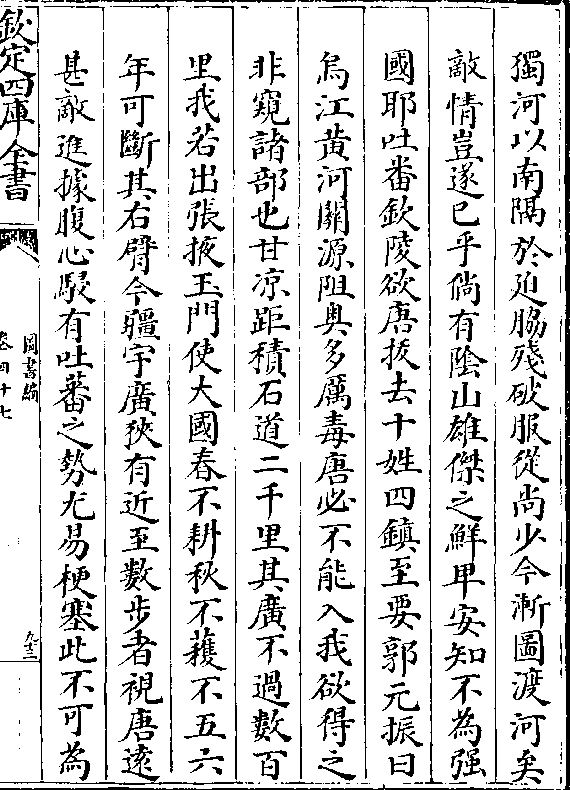 獨河以南隅於迫脇殘破服從尚少今漸圖渡河矣
敵情豈遂已乎倘有陰山雄傑之鮮卑安知不為强
國耶吐番欽陵欲唐拔去十姓四鎮至要郭元振曰
烏江黄河關源阻奥多厲毒唐必不能入我欲得之
非窺諸部也甘凉距積石道二千里其廣不過數百
里我若出張掖玉門使大國春不耕秋不穫不五六
年可斷其右臂今疆宇廣狹有近至數步者視唐逺
甚敵進據腹心駸有吐蕃之勢尤易梗塞此不可為
欽定四庫全書
圖書編
卷四十七
九三